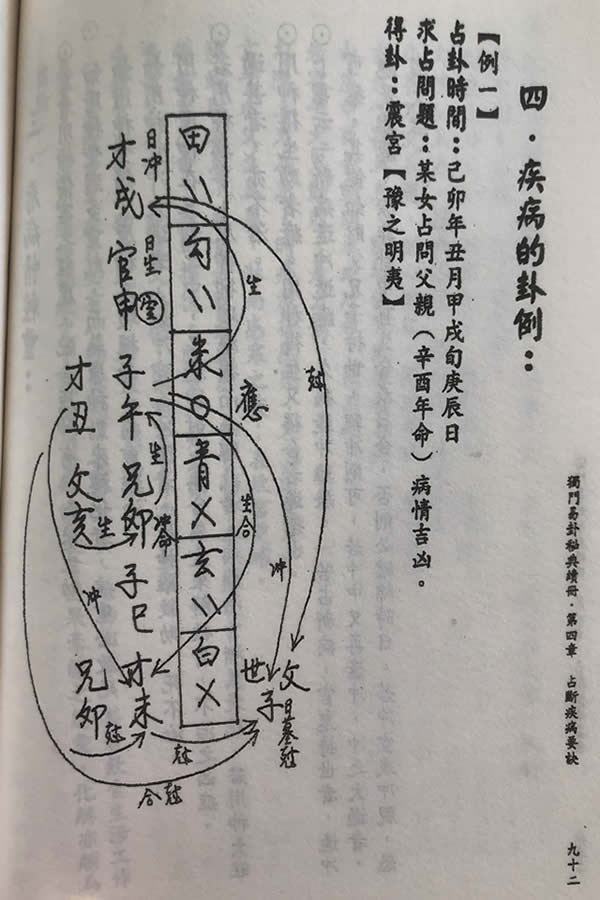 四．疾病的卦例：
【例一】
占卦時間：己卯年丑月甲戌旬庚辰日
求占問題：某女占問父親（辛酉年命）病情吉凶。
得卦：震宮【豫之明夷】
田 \\
日冲
才戌
勾 \\
日生
官申 空
生
尅
朱 O
應
子午
才丑
生
青 X
兄卯
冲命
父亥
生
生合
冲
玄 \\
子巳
冲
白 X
才未
兄卯
尅
尅
世
子父
日墓尅
合尅
獨門易卦秘典續冊．第四章 占斷疾病要訣
九十二